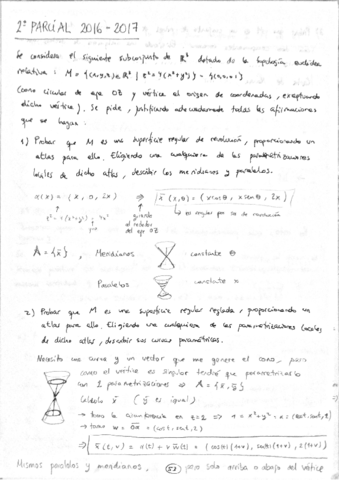 2º PARCIAL 2016-2017
Se considera el siguiente subconjunto de R³ dotado de la topología euclídea
relativa: M = {(x,y,z) ∈ R³ | z² = 4(x²+y²)} - {(0,0,0)}
(cono circular de eje OZ y vértice el origen de coordenadas, exceptuando
dicho vértice). Se pide, justificando adecuadamente todas las afirmaciones
que se hagan:
1) Probar que M es una superficie regular de revolución, proporcionando un
atlas para ella. Eligiendo una cualquiera de las parametrizaciones
locales de dicho atlas, describir los meridianos y paralelos.
α(x) = (x, 0, 2x) ⇒ x̄(x,θ) = (x cosθ, x senθ, 2x)
girando
alrededor
del eje OZ
es regular por ser de revolución
A = {x̄}, Meridianos constante θ
Paralelos constante x
2) Probar que M es una superficie regular reglada, proporcionando un
atlas para ella. Eligiendo una cualquiera de las parametrizaciones locales
de dicho atlas, describir sus curvas paramétricas.
Necesito una curva y un vector que me genere el cono, pero
como el vértice es singular tendré que parametrizarlo
con 2 parametrizaciones ⇒ A = {x̄, ȳ}
Calculo x̄ (ȳ es igual)
→ tomo la circunferencia en z=2 ⇒ 1 = x²+y² → α = (cost, sent, 2)
→ tomo w = = (cost, sent, 2)
⇒ x̄(t,v) = α(t) + v w̄(t) = (cost(1+v), sent(1+v), 2(1+v))
Mismos paralelos y meridianos, pero solo arriba o abajo del vértice